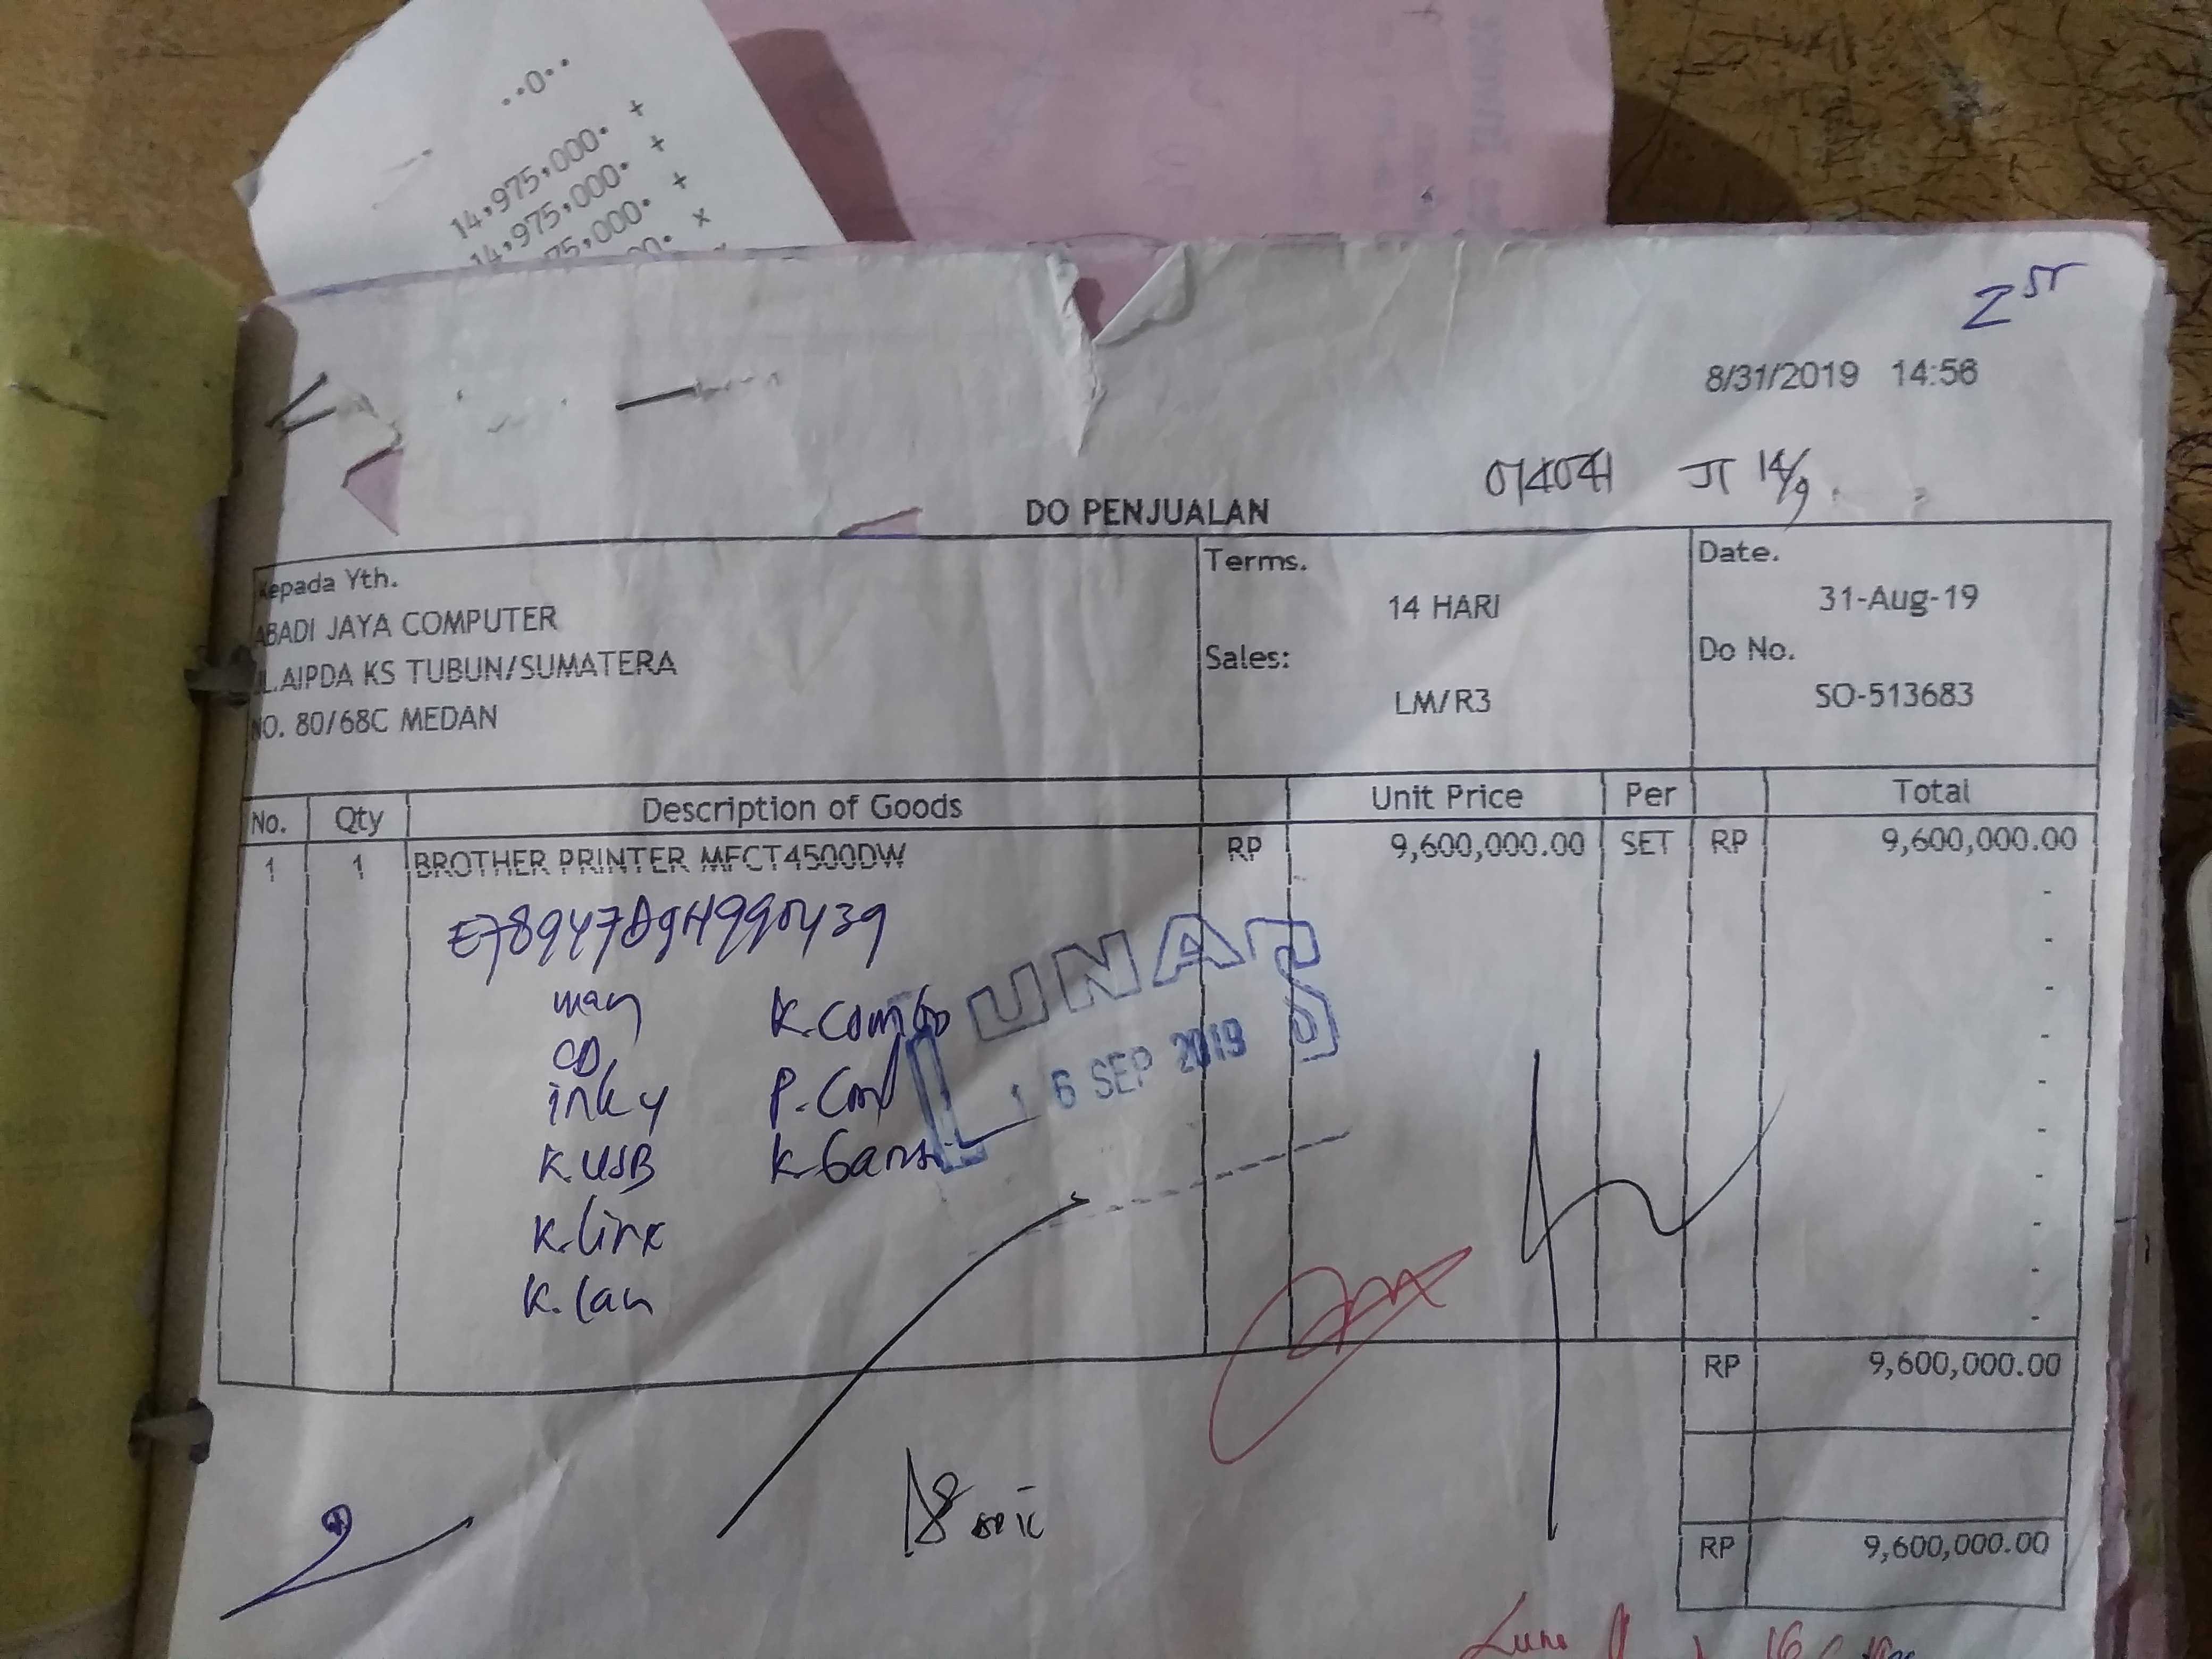 ..0..
14,975,000. +
14,975,000. +
75,000. +
00. x
8/31/2019 14:56
JT 14/9
DO PENJUALAN
Kepada Yth.
ABADI JAYA COMPUTER
JL.AIPDA KS TUBUN/SUMATERA
NO. 80/68C MEDAN
Terms.
14 HARI
Sales:
LM/R3
Date.
31-Aug-19
Do No.
SO-513683
No. Qty Description of Goods Unit Price Per Total
1 1 BROTHER PRINTER MFCT4500DW RP 9,600,000.00 SET RP 9,600,000.00
E78947A9H990439
man K.Combo
CD
ink 4 P.Cord
K.USB K.Garansi
K.line
K.lan
LUNAS
16 SEP 2019
RP 9,600,000.00
RP 9,600,000.00